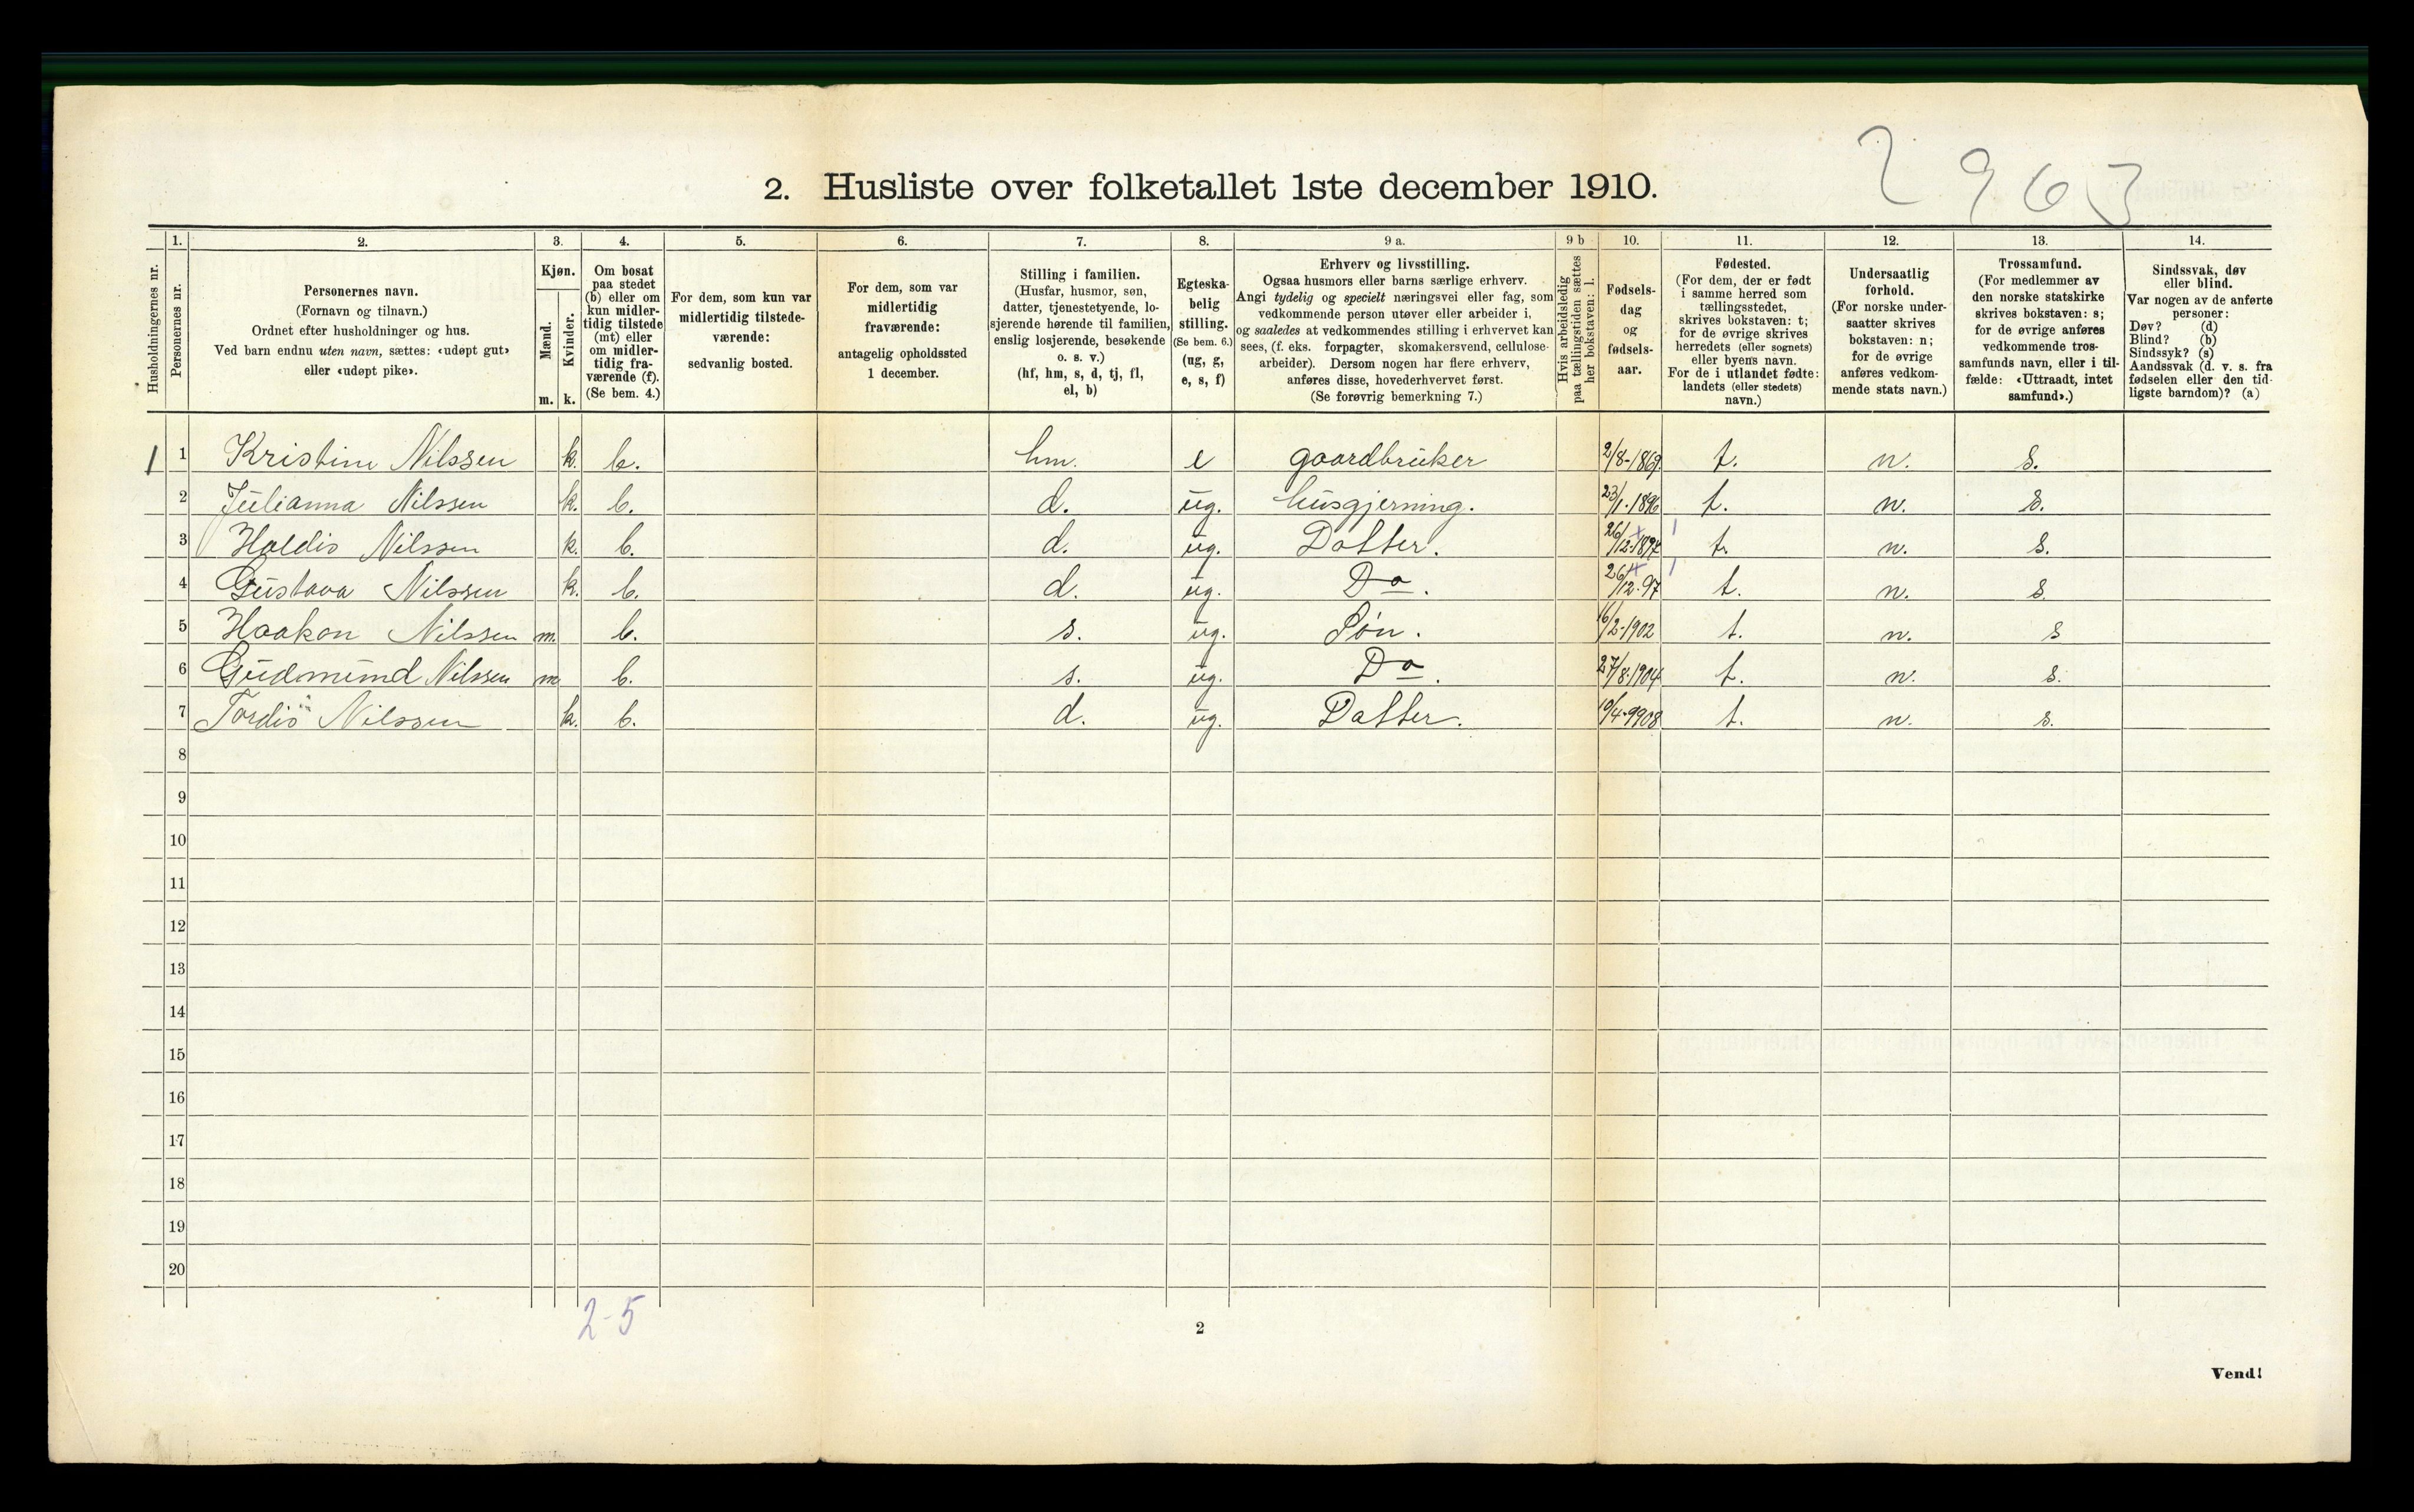 2 9 6 3
2. Husliste over folketallet 1ste december 1910.
Husholdningernes nr.
1.
Personernes nr.
2.
Personernes navn.
(Fornavn og tilnavn.)
Ordnet efter husholdninger og hus.
Ved barn endnu uten navn, sættes: «udøpt gut»
eller «udøpt pike».
3.
Kjøn.
Mænd.
Kvinder.
m. k.
4.
Om bosat
paa stedet
(b) eller om
kun midler-
tidig tilstede
(mt) eller
om midler-
tidig fra-
værende (f).
(Se bem. 4.)
5.
For dem, som kun var
midlertidig tilstede-
værende:
sedvanlig bosted.
6.
For dem, som var
midlertidig
fraværende:
antagelig opholdssted
1 december.
7.
Stilling i familien.
(Husfar, husmor, søn,
datter, tjenestetyende, lo-
sjerende hørende til familien,
enslig losjerende, besøkende
o. s. v.)
(hf, hm, s, d, tj, fl,
el, b)
8.
Egteska-
belig
stilling.
(Se bem. 6.)
(ug, g,
e, s, f)
9 a.
Erhverv og livsstilling.
Ogsaa husmors eller barns særlige erhverv.
Angi tydelig og specielt næringsvei eller fag, som
vedkommende person utøver eller arbeider i,
og saaledes at vedkommendes stilling i erhvervet kan
sees, (f. eks. forpagter, skomakersvend, cellulose-
arbeider). Dersom nogen har flere erhverv,
anføres disse, hovederhvervet først.
(Se forøvrig bemerkning 7.)
9 b
Hvis arbeidsledig
paa tællingstiden sættes
her bokstaven: l.
10.
Fødsels-
dag
og
fødsels-
aar.
11.
Fødested.
(For dem, der er født
i samme herred som
tællingsstedet,
skrives bokstaven: t;
for de øvrige skrives
herredets (eller sognets)
eller byens navn.
For de i utlandet fødte:
landets (eller stedets)
navn.)
12.
Undersaatlig
forhold.
(For norske under-
saatter skrives
bokstaven: n;
for de øvrige
anføres vedkom-
mende stats navn.)
13.
Trossamfund.
(For medlemmer av
den norske statskirke
skrives bokstaven: s;
for de øvrige anføres
vedkommende tros-
samfunds navn, eller i til-
fælde: «Uttraadt, intet
samfund».)
14.
Sindssvak, døv
eller blind.
Var nogen av de anførte
personer:
Døv? (d)
Blind? (b)
Sindssyk? (s)
Aandssvak (d. v. s. fra
fødselen eller den tid-
ligste barndom)? (a)
1 1 Kristine Nilssen k. b. hm. e gaardbruker 2/8-1869. t. n. s.
2 Julianna Nilssen k. b. d. ug. husgjerning. 23/1-1896 t. n. s.
3 Haldis Nilssen k. b. d. ug. Datter. 26/12-1897 t. n. s.
4 Gustava Nilssen k. b. d. ug. Do. 26/12-97 t. n. s.
5 Haakon Nilssen m. b. s. ug. Søn. 16/2-1902 t. n. s
6 Gudmund Nilssen m b. s. ug. Do. 27/8-1904 t. n. s.
7 Tordis Nilssen k. b. d. ug. Datter. 10/4-9908 t. n. s.
8
9
10
11
12
13
14
15
16
17
18
19
20
2-5
2
Vend!